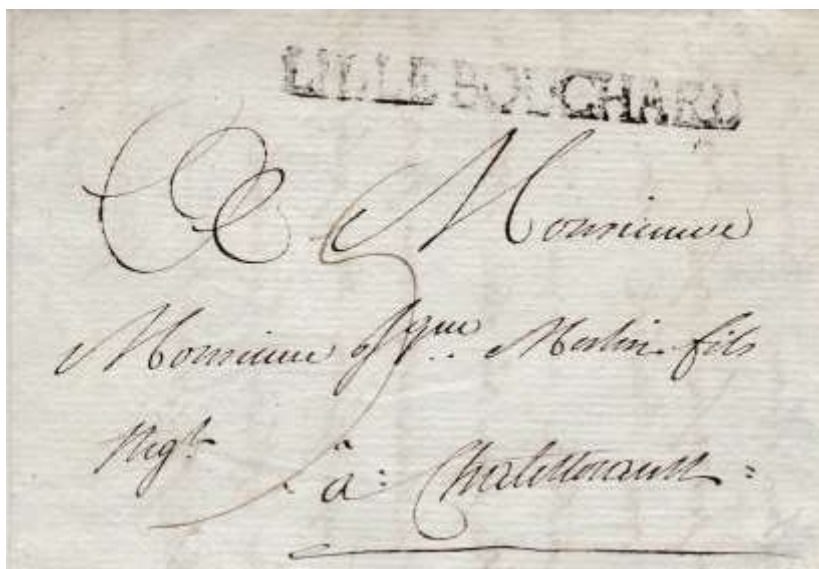 LILLE BOUCHARD
A Monsieur
Monsieur Merlin fils
Negt
à Chatellerault